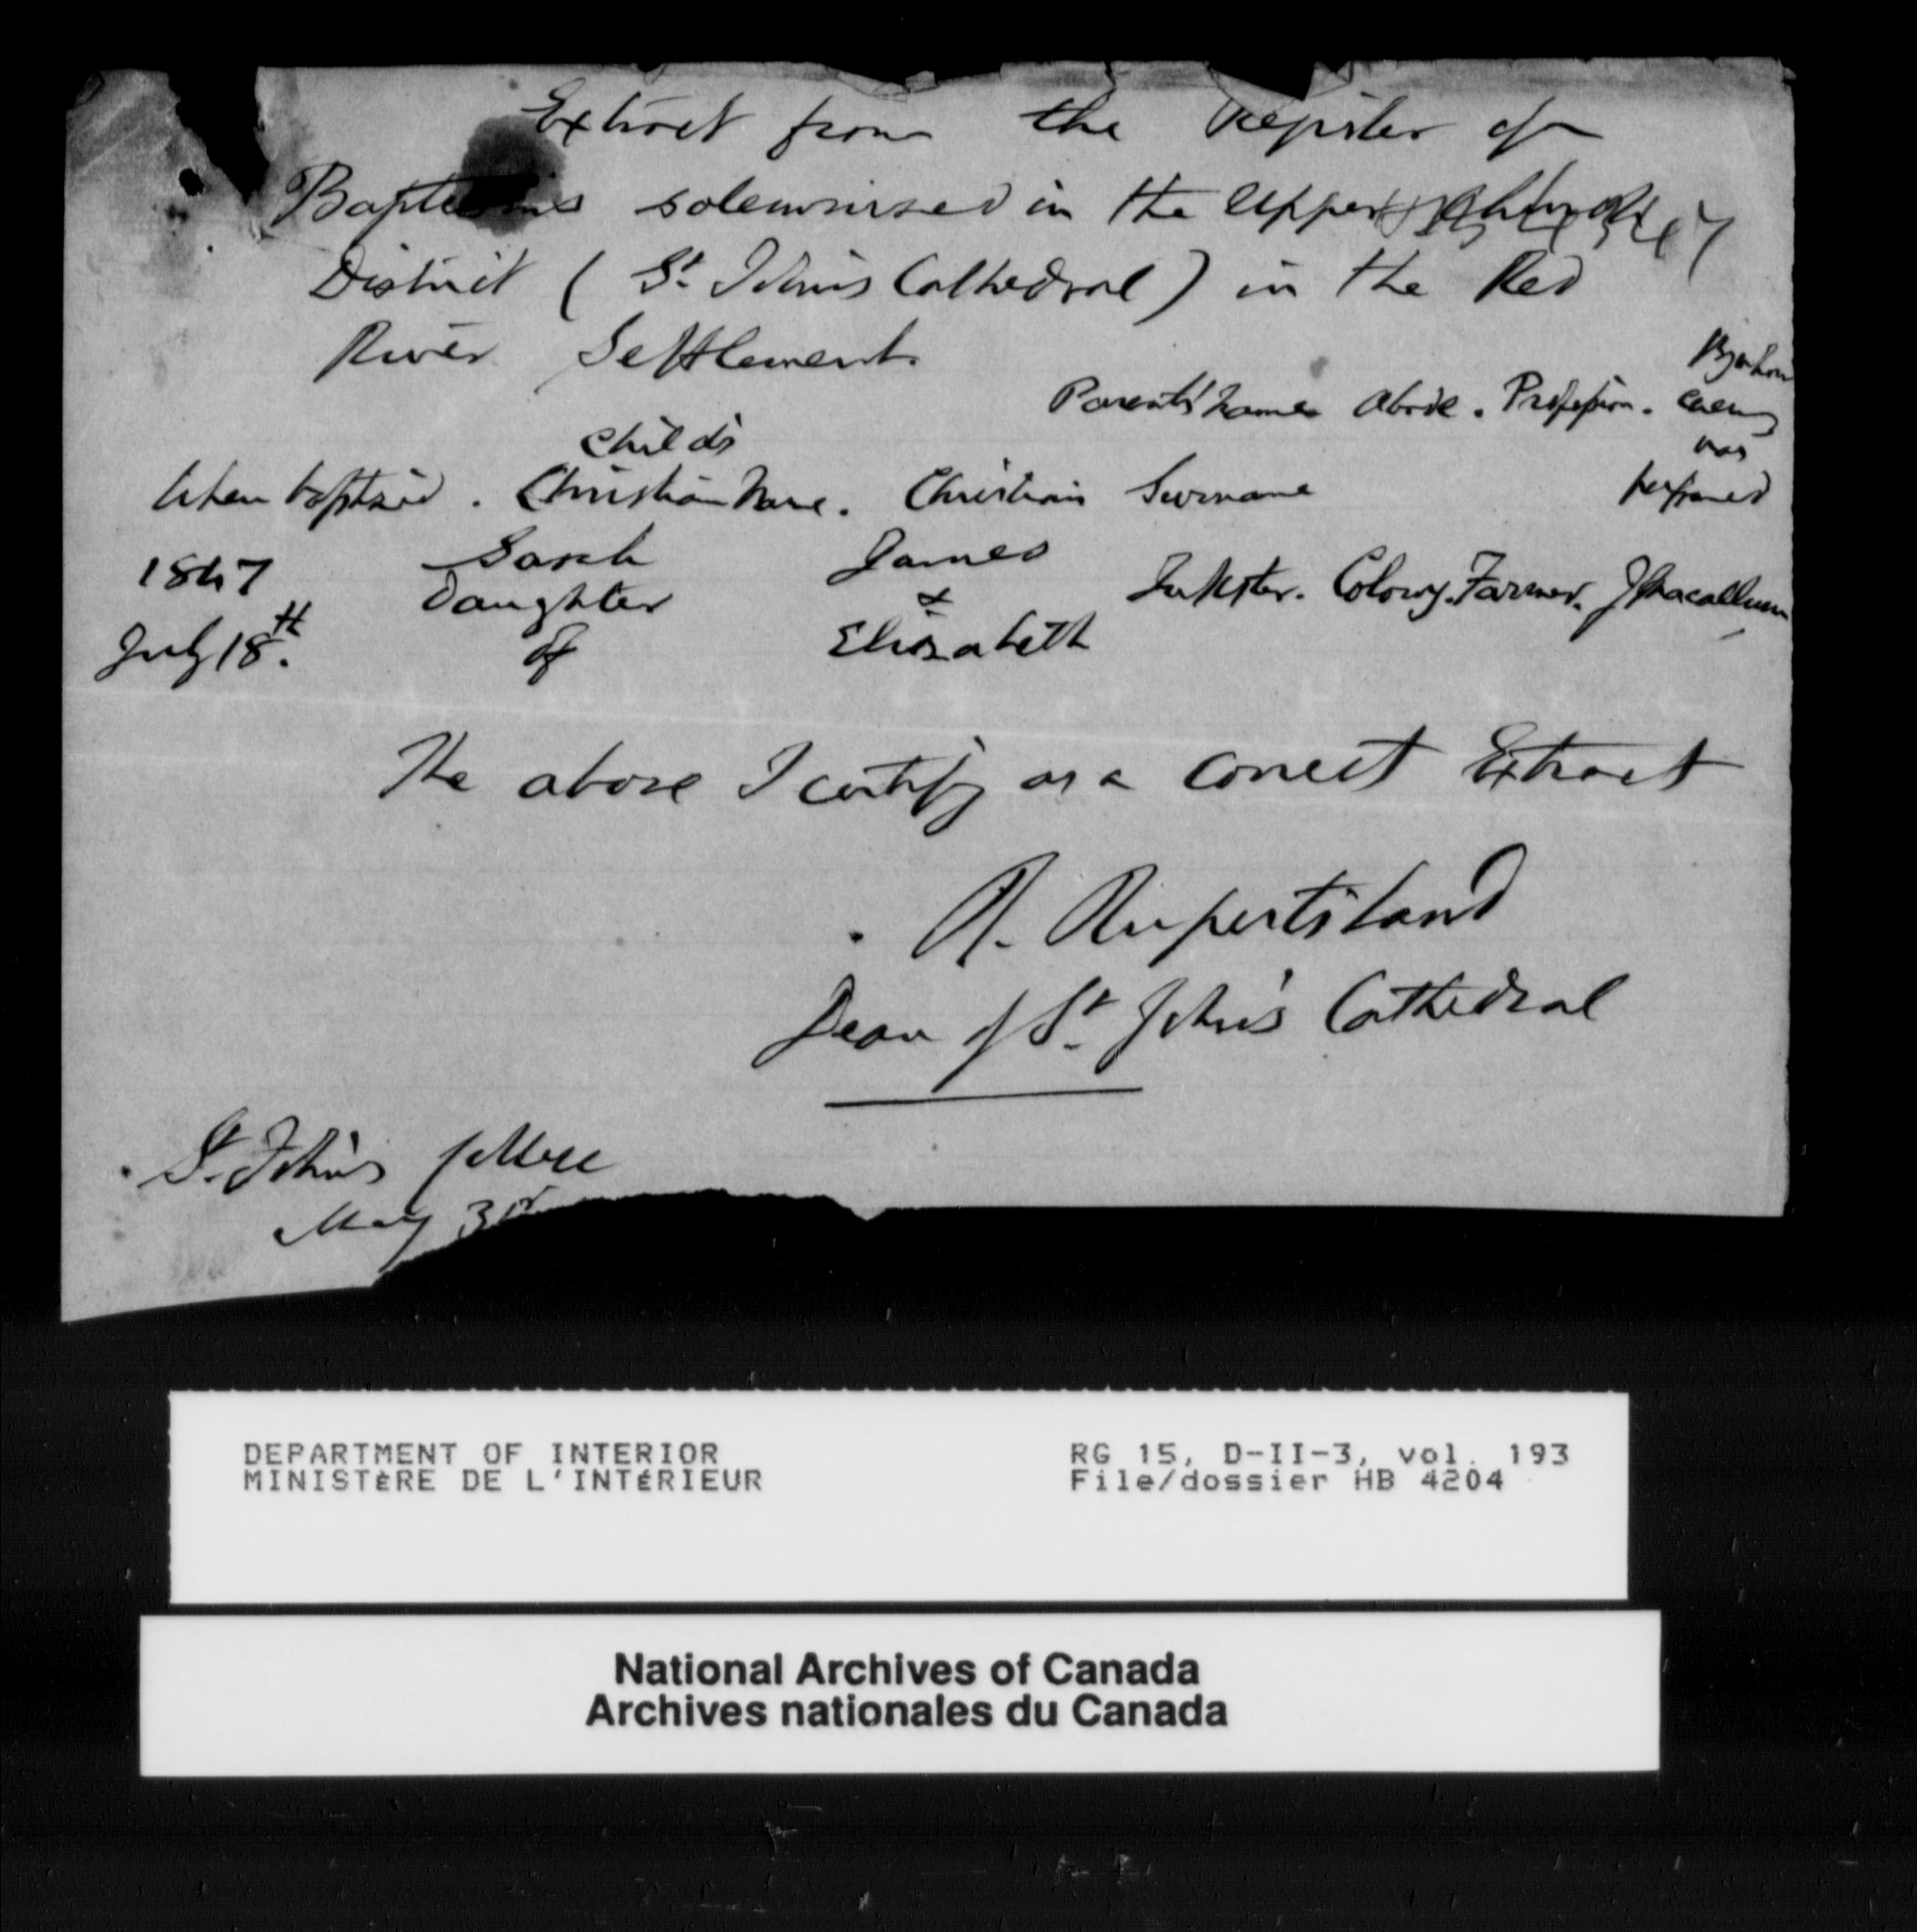 Extract from the Register of
Baptisms solemnised in the Upper
District (St. John's Cathedral) in the Red
River Settlement.
By whom
Parents' Names Abode. Profession. Cerem
was
Child's
When baptised. Christian Name. Christian Surname performed
1847 Sarah James
Daughter & Inkster. Colony. Farmer. J Macallum
July 18th. of Elizabeth
The above I certify as a correct Extract
R. Rupertsland
Dean of St. John's Cathedral
St. John's College
May 31st
DEPARTMENT OF INTERIOR RG 15, D-II-3, vol. 193
MINISTÈRE DE L'INTÉRIEUR File/dossier HB 4204
National Archives of Canada
Archives nationales du Canada